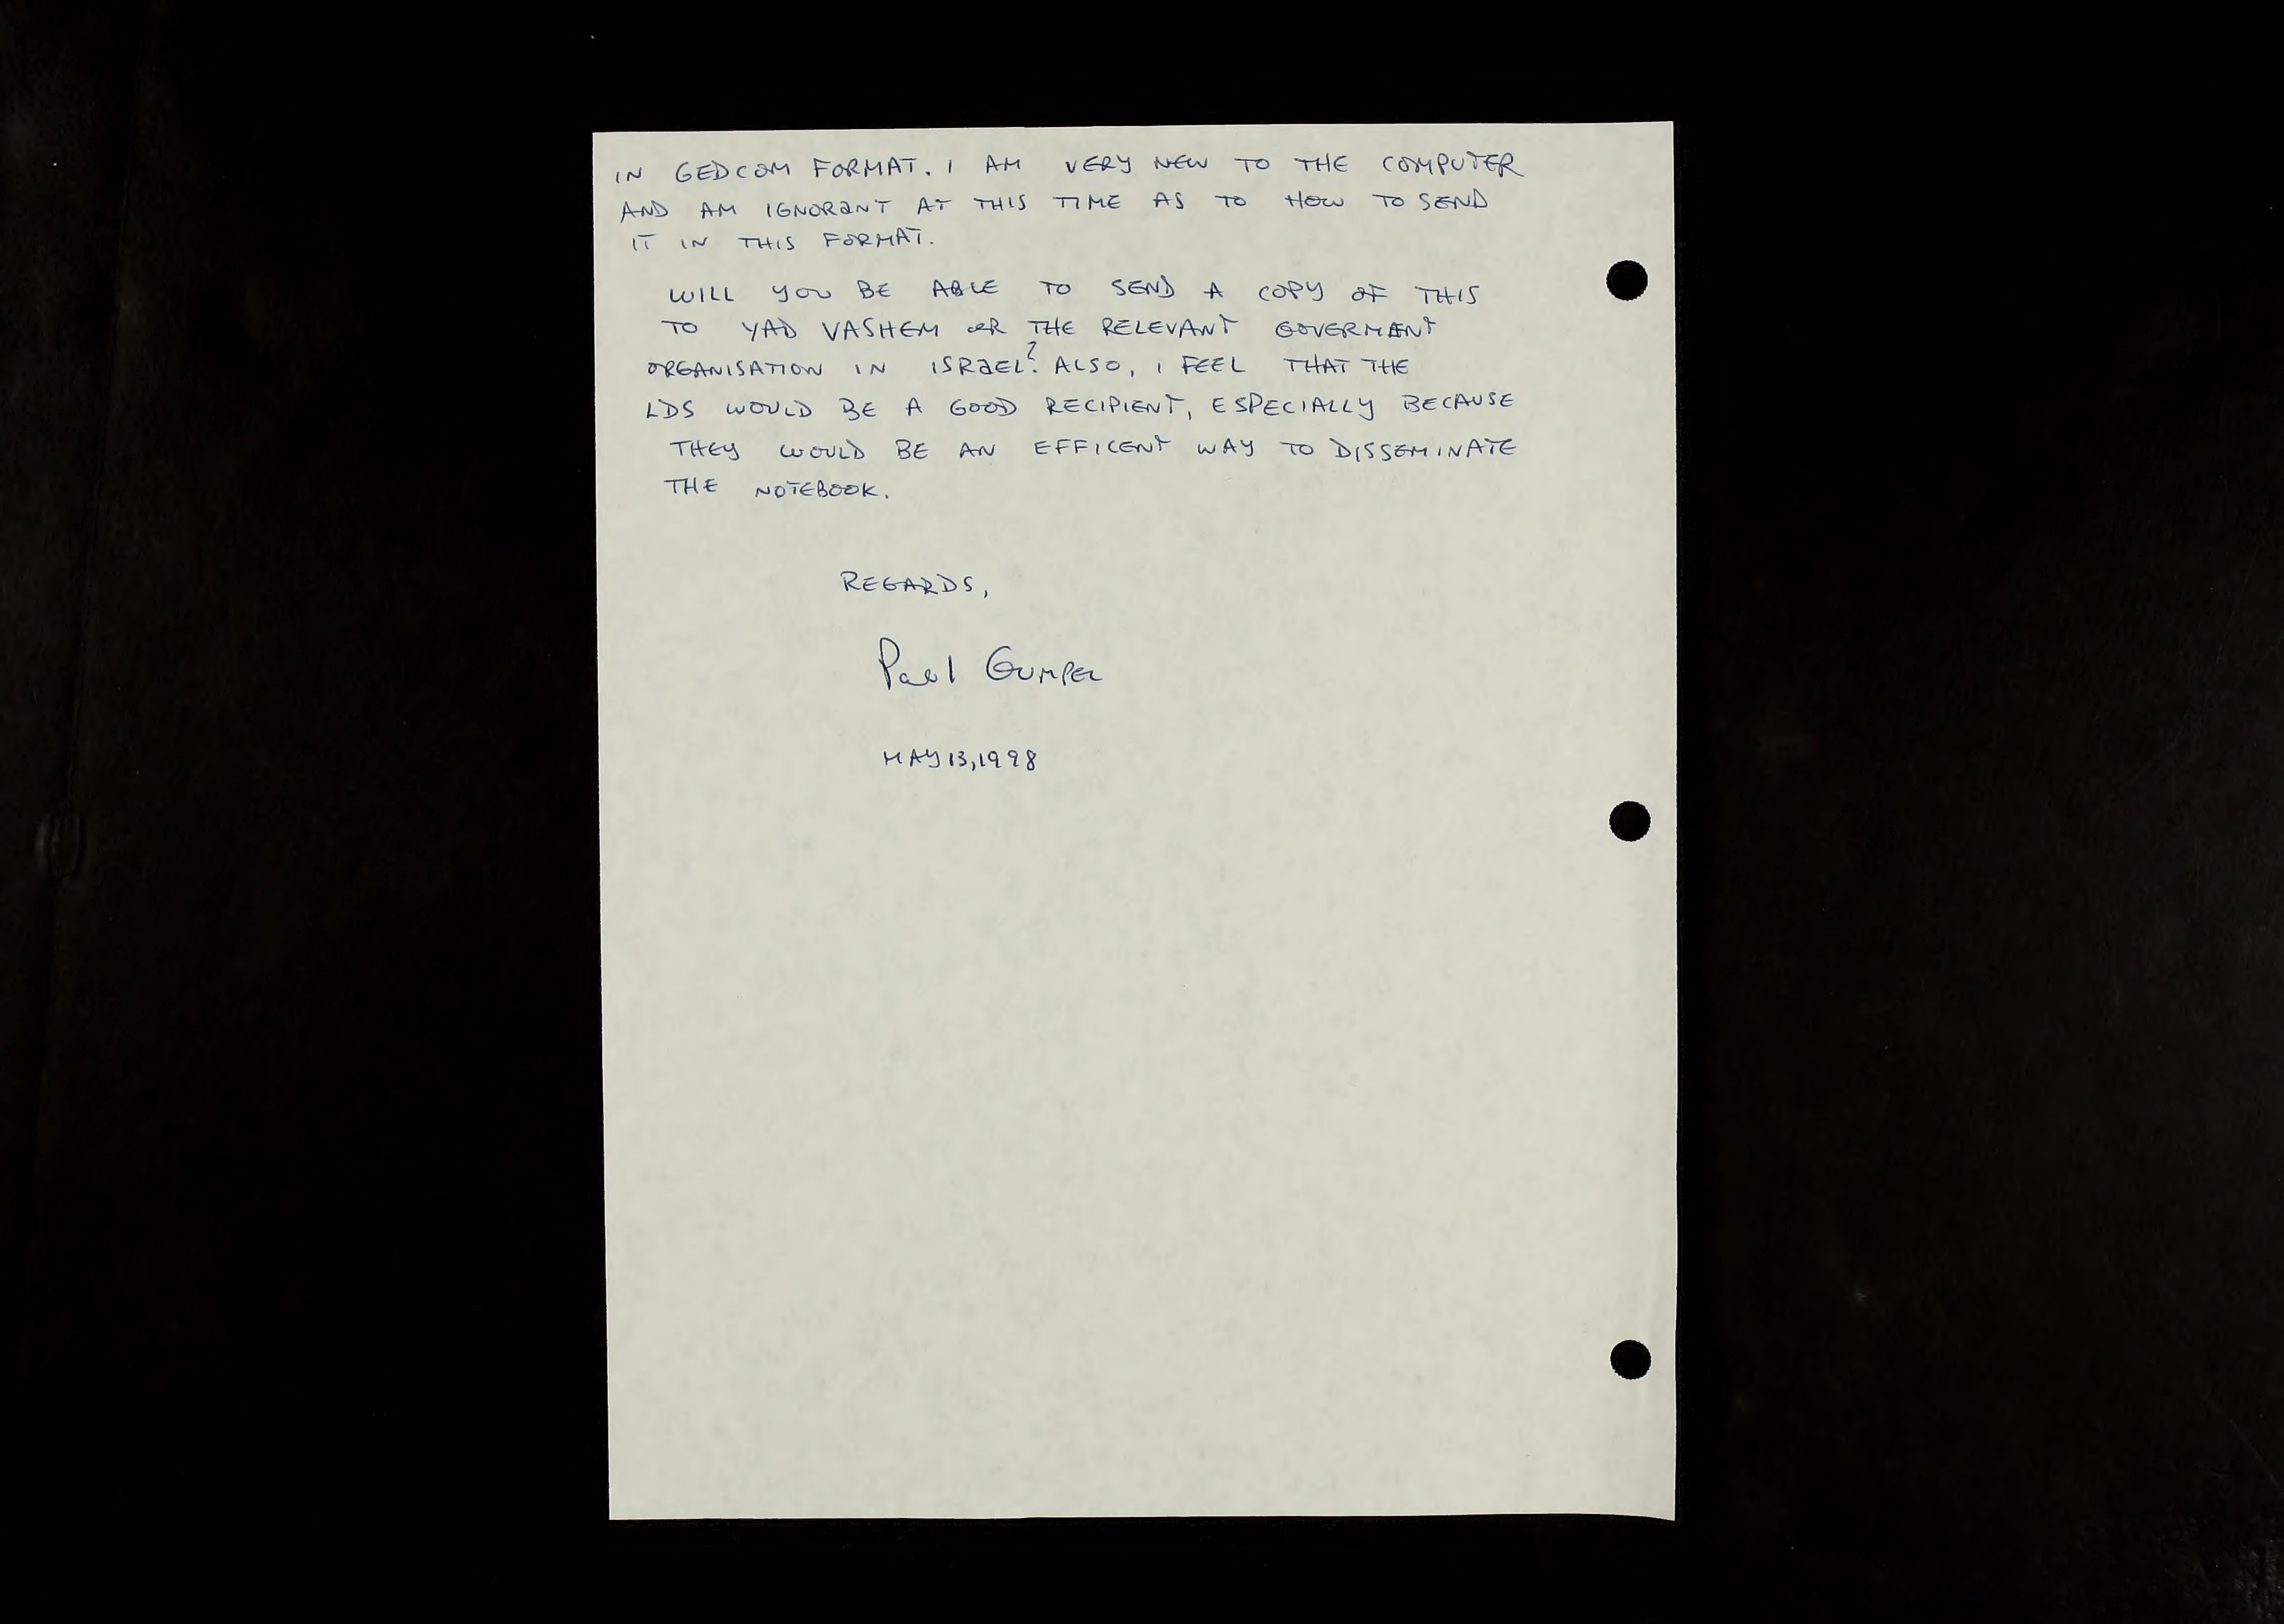 IN GEDCOM FORMAT. I AM VERY NEW TO THE COMPUTER
AND AM IGNORANT AT THIS TIME AS TO HOW TO SEND
IT IN THIS FORMAT.
WILL YOU BE ABLE TO SEND A COPY OF THIS
TO YAD VASHEM OR THE RELEVANT GOVERMENT
ORGANISATION IN ISRAEL? ALSO, I FEEL THAT THE
LDS WOULD BE A GOOD RECIPIENT, ESPECIALLY BECAUSE
THEY WOULD BE AN EFFICENT WAY TO DISSEMINATE
THE NOTEBOOK.
REGARDS,
Paul Gumpel
MAY 13, 1998